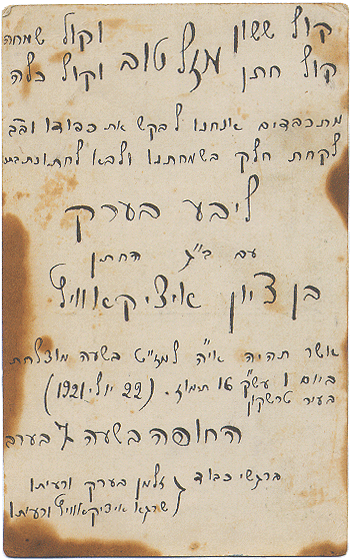 קול ששון מזל טוב וקול שמחה
קול חתן וקול כלה
מתכבדים אנחנו לבקש את כבודו וב״ב
לקחת חלק בשמחתנו ולבא לחתונת בת
ליבע בערק
עם ב״ג החתן
בן ציון איציקאוויץ
אשר תהיה אי״ה למז״ט בשעה מוצלחת
ביום ו עש״ק 16 תמוז. (22 יולי 1921)
בעיר טרשקון
החופה בשעה 7 בערב
ברגשי כבוד זלמן בערק ורעיתו
שרגא איציקאוויץ ורעיתו